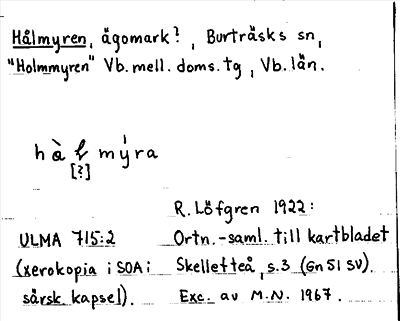 Hålmyren, ägomark?, Burträsks sn,
"Holmmyren" Vb. mell. doms. tg, Vb. län.
[?]
R. Löfgren 1922:
ULMA 715:2 Ortn.-saml. till kartbladet
(xerokopia i SOA i Skellefteå, s.3 (Gn 51 SV).
särsk. kapsel). Exc. av M.N. 1967.